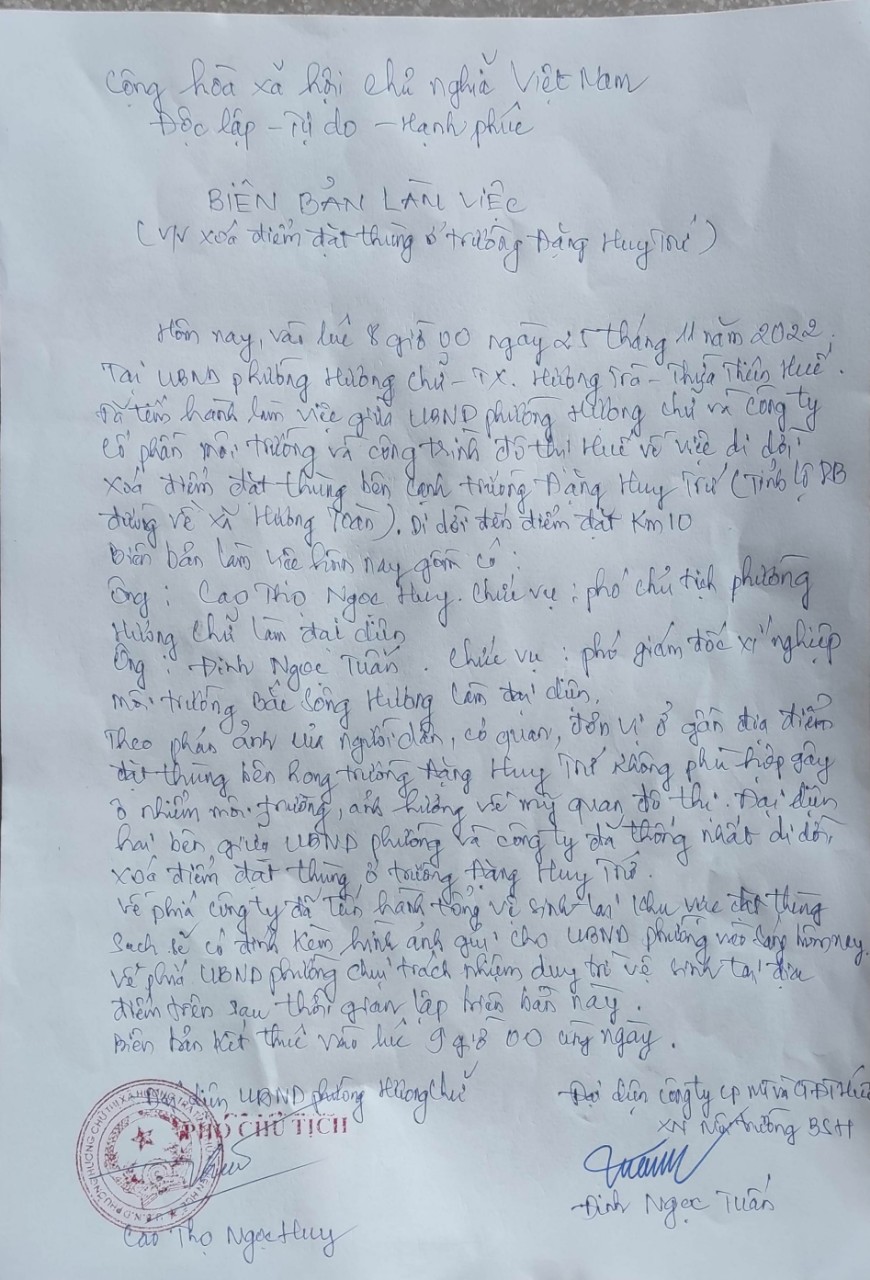 Cộng hòa xã hội chủ nghĩa Việt Nam
Độc lập - Tự do - Hạnh phúc
BIÊN BẢN LÀM VIỆC
(V/v xoá điểm đặt thùng ở trường Đặng Huy Trứ)
Hôm nay, vào lúc 8 giờ 00 ngày 25 tháng 11 năm 2022,
Tại UBND phường Hương Chữ - TX. Hương Trà - Thừa Thiên Huế.
Đã tiến hành làm việc giữa UBND phường Hương Chữ và công ty
Cổ phần môi trường và công trình đô thị Huế về việc di dời,
xoá điểm đặt thùng bên cạnh trường Đặng Huy Trứ (Tỉnh lộ 8B
đường về xã Hương Toàn). Di dời đến điểm đặt Km10
Biên bản làm việc hôm nay gồm có:
Ông: Cao Thọ Ngọc Huy. Chức vụ: phó chủ tịch phường
Hương Chữ làm đại diện
Ông: Đinh Ngọc Tuấn. Chức vụ: phó giám đốc xí nghiệp
môi trường Bắc Sông Hương làm đại diện.
Theo phản ảnh của người dân, cơ quan, đơn vị ở gần địa điểm
đặt thùng bên hong trường Đặng Huy Trứ không phù hợp gây
ô nhiễm môi trường, ảnh hưởng về mỹ quan đô thị. Đại diện
hai bên giữa UBND phường và công ty đã thống nhất di dời,
xoá điểm đặt thùng ở trường Đặng Huy Trứ.
Về phía công ty đã tiến hành tổng vệ sinh lại khu vực đặt thùng
sạch sẽ có đính kèm hình ảnh gửi cho UBND phường vào sáng hôm nay.
Về phía UBND phường chịu trách nhiệm duy trì vệ sinh tại địa
điểm trên sau thời gian lập biên bản này.
Biên bản kết thúc vào lúc 9 giờ 00 cùng ngày.
Đại diện UBND phường Hương Chữ
Đại diện công ty CP MT và CTĐT Huế
PHÓ CHỦ TỊCH
XN Môi trường BSH
Cao Thọ Ngọc Huy
Đinh Ngọc Tuấn